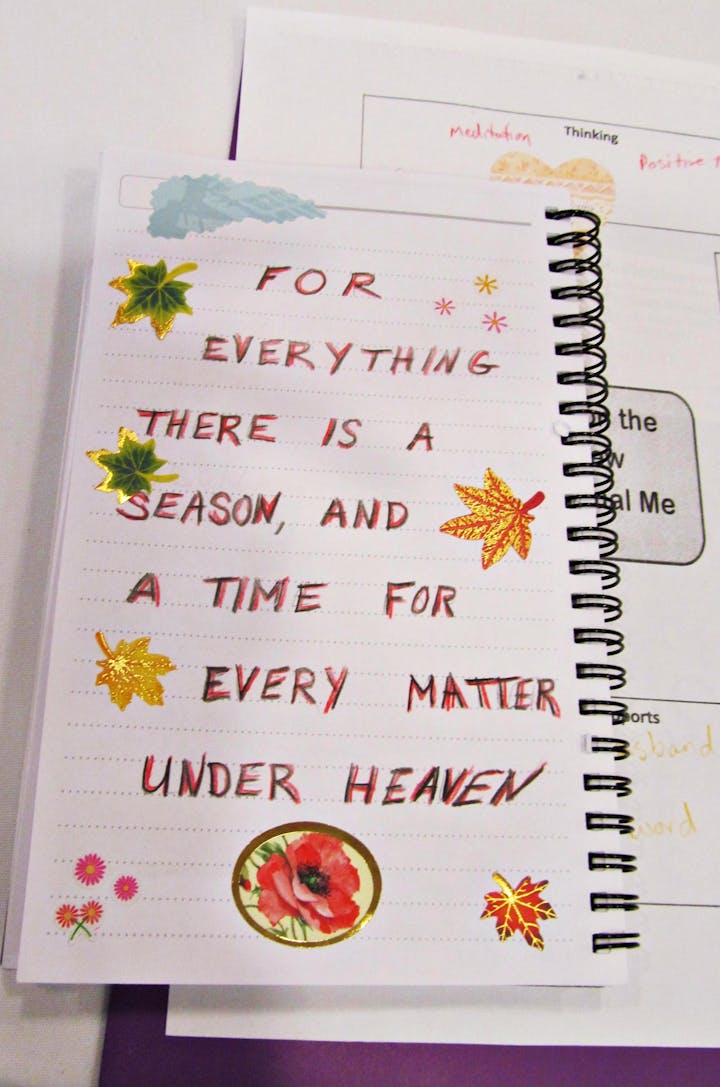 Meditation
Thinking
Positive
FOR
EVERYTHING
THERE IS A
SEASON, AND
A TIME FOR
EVERY MATTER
UNDER HEAVEN
the
Me
word